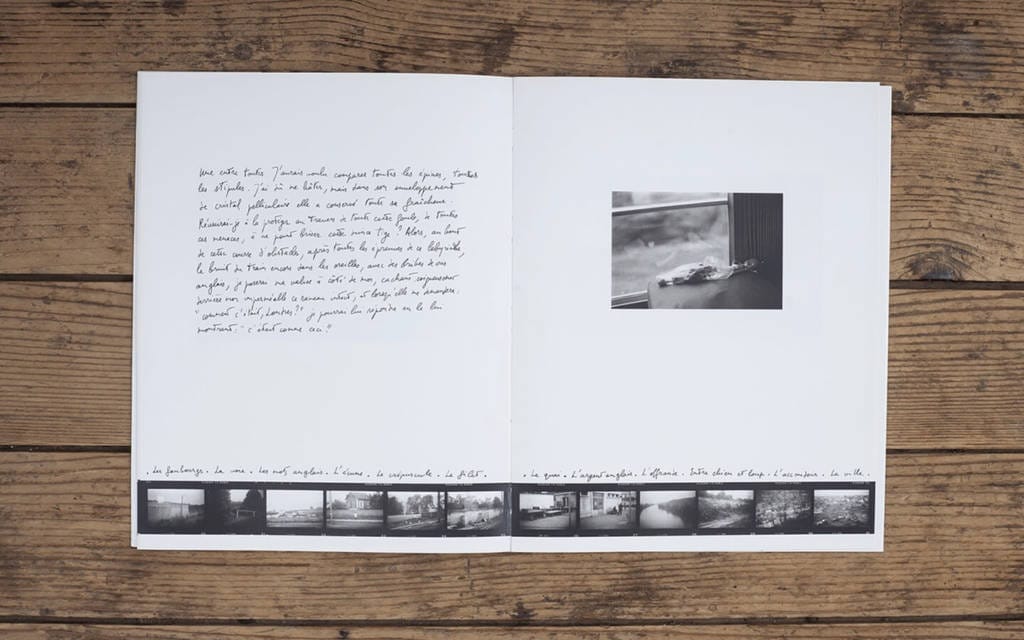 Une entre toutes J'aurais voulu comparer toutes les épines, toutes
les stipules. J'ai dû me hâter, mais dans son enveloppement
de cristal pelliculaire elle a conservé toute sa fraîcheur.
Réussirai-je à la protéger au travers de toute cette foule, de toutes
ces menaces, à ne point briser cette mince tige? Alors, au bout
de cette course d'obstacles, après toutes les épreuves de ce labyrinthe,
le bruit du train encore dans les oreilles, avec des bribes de
anglais, je poserai ma valise à côté de moi, cachant soigneusement
derrière mon imperméable ce rameau, et lorsqu'elle me demandera:
"comment c'était, Londres?" je pourrai lui répondre en le lui
montrant: "c'était comme ceci."
. Les faubourgs. La voie. Les mots anglais. L'écume. Le crépuscule. Le filet.
. Le quai. L'argent anglais. L'offrande. Entre chien et loup. L'ascenseur. La ville.